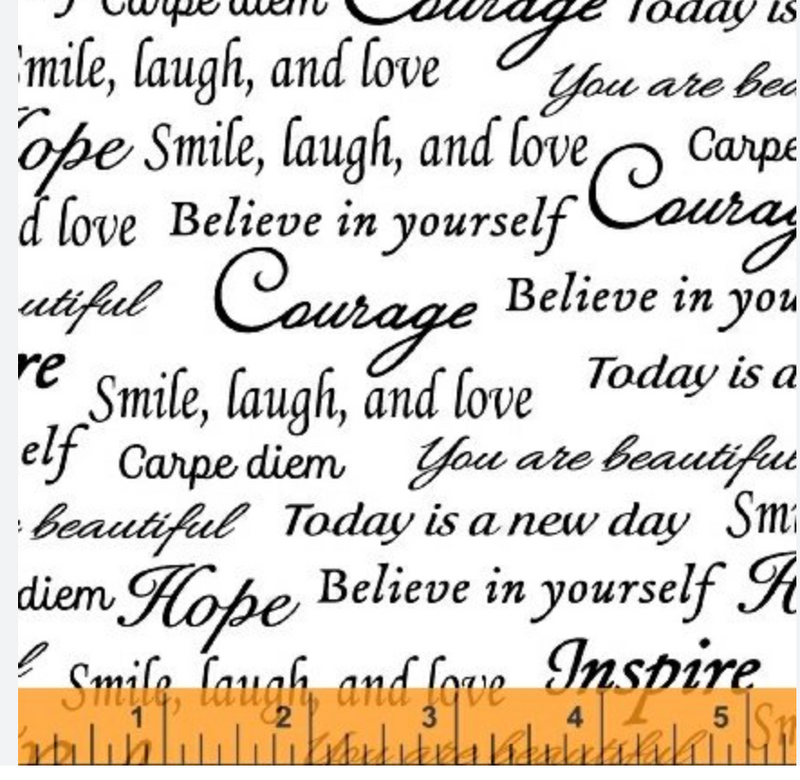 Carpe diem Courage Today is
mile, laugh, and love
You are bea
ope Smile, laugh, and love Carpe
d love Believe in yourself Courag
utiful Courage Believe in you
re Smile, laugh, and love Today is a
elf Carpe diem You are beautiful
beautiful Today is a new day Sm
diem Hope Believe in yourself H
Smile, laugh, and love Inspire
1 2 3 4 5
You are beautiful Sm